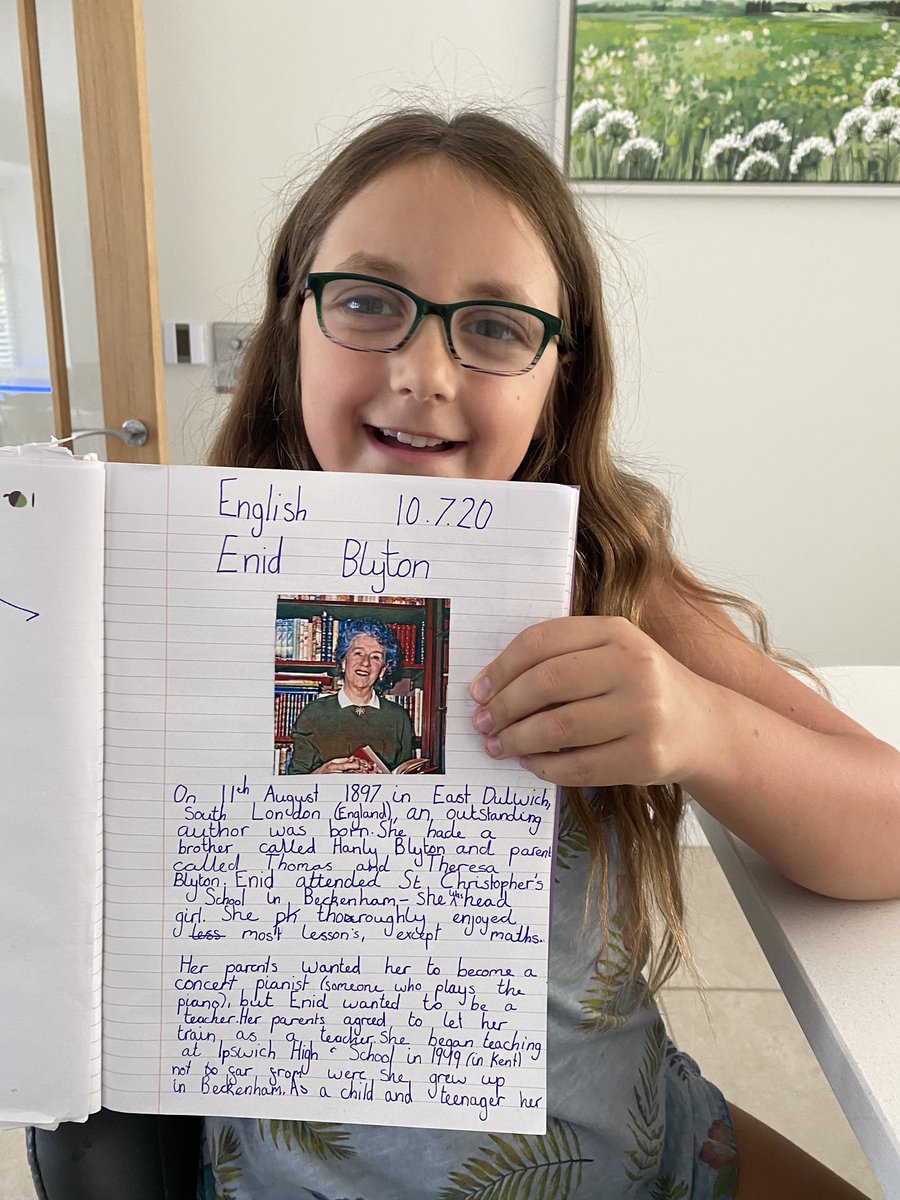 English 10.7.20
Enid Blyton
On 11th August 1897 in East Dulwich,
South London (England), an outstanding
author was born. She hade a
brother called Hanly Blyton and parent
called Thomas and Theresa
Blyton. Enid attended St Christopher's
School in Beckenham - she was head
girl. She pk thoroughly enjoyed
less most lesson's, except maths.
Her parents wanted her to become a
concert pianist (someone who plays the
piano), but Enid wanted to be a
teacher. Her parents agreed to let her
train as a teacher. She began teaching
at Ipswich High School in 1949 (in Kent)
not to far from were she grew up
in Beckenham. As a child and teenager her